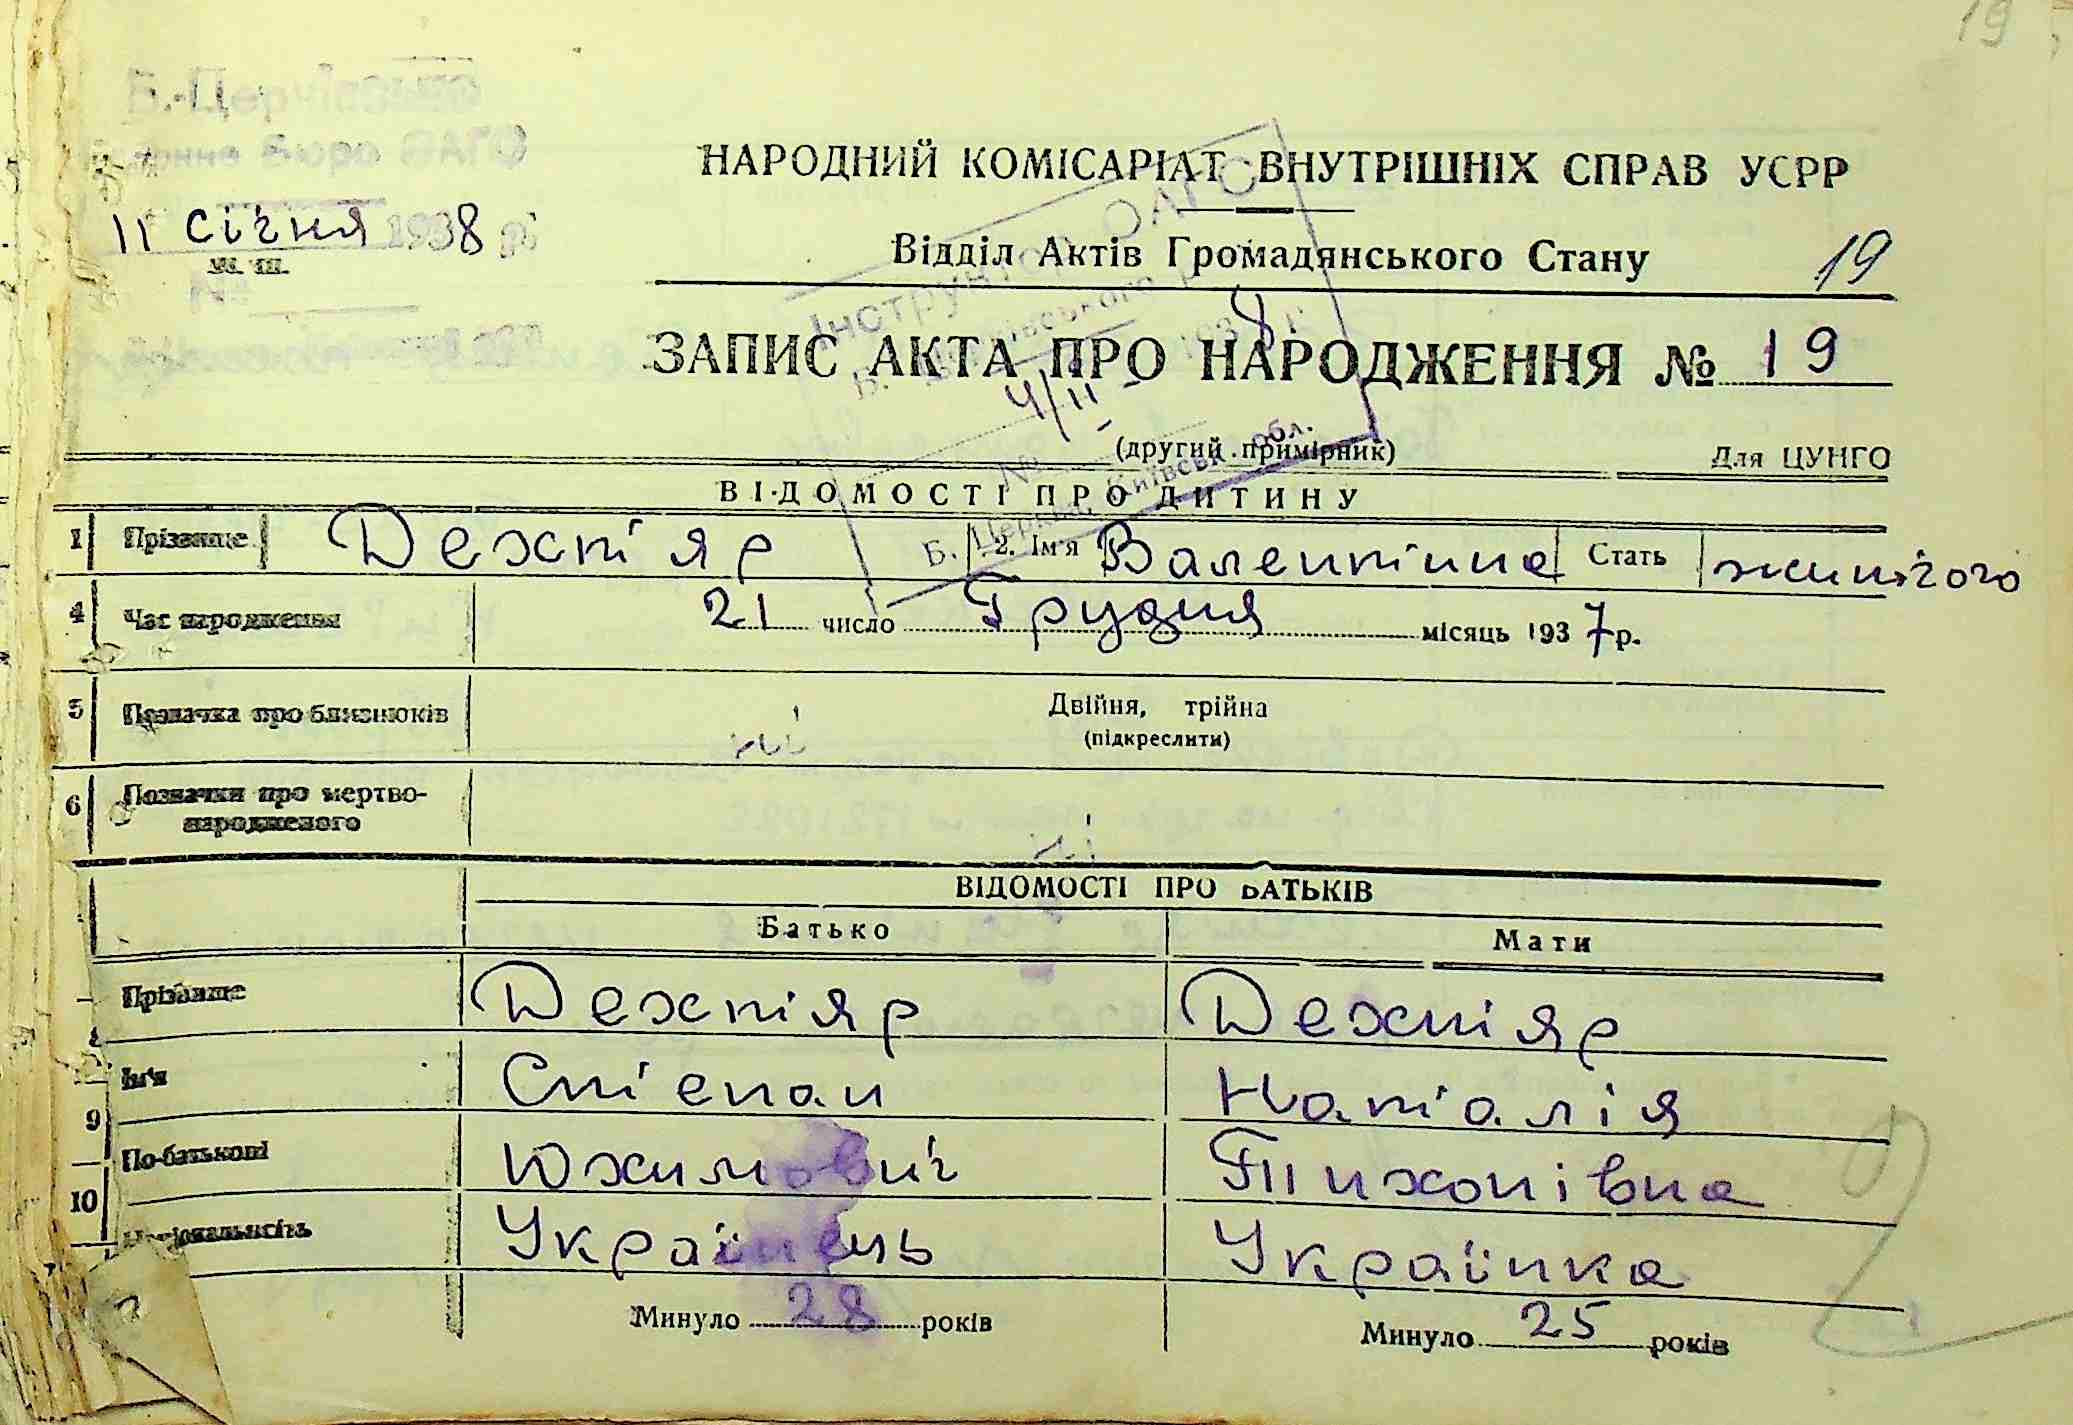 19
Б.-Церківське
Районне Бюро ЗАГС
11 січня 1938 р.
м. ш.
№
НАРОДНИЙ КОМІСАРІАТ ВНУТРІШНІХ СПРАВ УСРР
Відділ Актів Громадянського Стану 19
ЗАПИС АКТА ПРО НАРОДЖЕННЯ № 19
Інструктор ОАГС
Б. 1938 р.
4/II
№
Б. Церква, Київськ. обл.
(другий примірник) Для ЦУНГО
ВІДОМОСТІ ПРО ДИТИНУ
1 Прізвище Дехтіяр 2. Ім'я Валентина Стать жиночого
4 Час народження 21 число Грудня місяць 1937 р.
5 Позначка про близнюків ні Двійня, трійна
(підкреслити)
6 Позначки про мертво-
народженого ні
ВІДОМОСТІ ПРО БАТЬКІВ
Батько Мати
Прізвище Дехтіяр Дехтіяр
Ім'я Стіепан Наталія
9 По-батькові Юхимович Тихонівна
10 Національність Українець Українка
Минуло 28 років Минуло 25 років